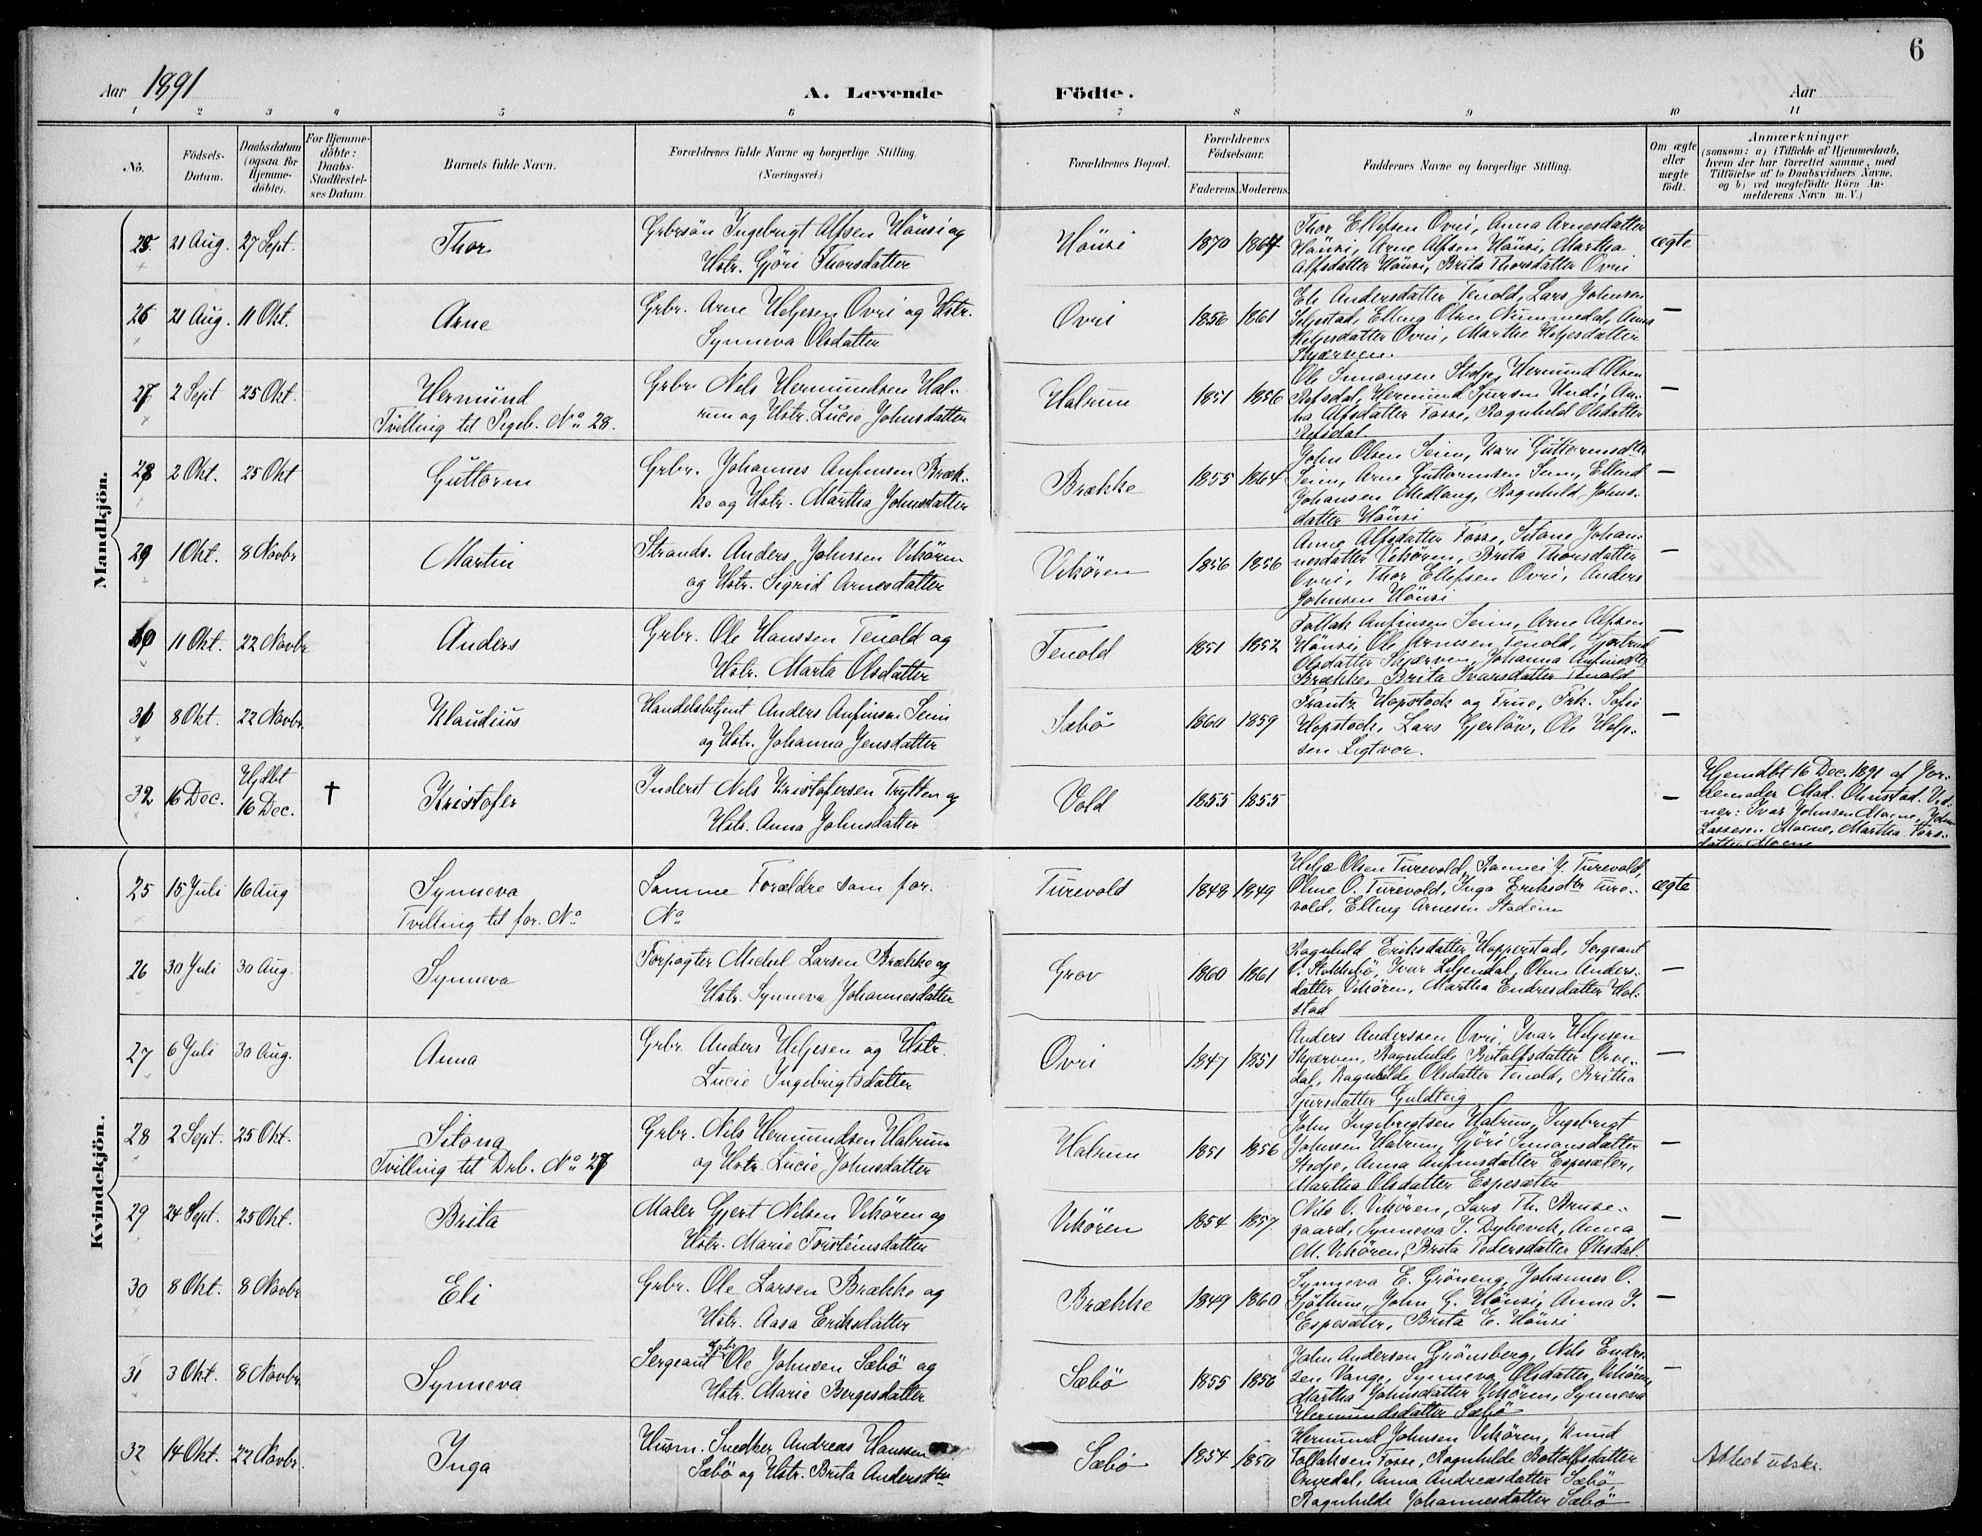 6
Aar 1891
A. Levende Födte.
Aar
1 2 3 4 5 6 7 8 9 10 11
No.
Födsels-
Datum.
Daabsdatum
(ogsaa for
Hjemme-
döbte).
For Hjemme-
döbte:
Daabs-
Stadfæstel-
ses Datum.
Barnets fulde Navn.
Forældrenes fulde Navne og borgerlige Stilling.
(Næringsvei.)
Forældrenes Bopæl.
Forældrenes
Födselsaar.
Faderens. Moderens.
Faddernes Navne og borgerlige Stilling.
Om ægte
eller
uægte
født.
Anmærkninger
(saasom: a) i Tilfælde af Hjemmedaab,
hvem der har forrettet samme, med
Tilföielse af to Daabsvidners Navne,
og b) ved uægtefödte Börn An-
melderens Navn m. V.)
Mandkjön.
25 21 Aug. 27 Sept. Thor
Grbrsön Ingebrigt Alfsen Hönsi og
Hstr. Gjöri Thorsdatter
Hönsi 1870 1867
Thor Ellefsen Ovri, Anna Arnesdatter
Hönsi, Arne Alfsen Hönsi, Martha
Alfsdatter Hönsi, Brita Thorsdatter Ovri
ægte
26 21 Aug. 11 Okt. Arne
Grbr. Arne Heljesen Ovri og Hstr.
Synneva Olsdatter
Ovri 1856 1861
Eli Andersdatter Tenold, Lars Johnsen
Seljestad, Elling Olsen Nummedal, Anna
Heljesdatter Ovri, Martha Heljesdatter
Skjærven.
—
27 2 Sept 25 Okt. Hermund
Tvilling til Pigeb. No 28.
Grbr. Nils Hermundsen Hal-
rum og Hstr. Lucie Johnsdatter
Halrum 1851 1856
Ole Simonsen Stedje, Hermund Olsen
Refsdal, Hermund Sjursen Undi, An-
na Alfsdatter Fosse, Ragnhild Olsdatter
Refsdal
—
28 2 Okt. 25 Okt Guttorm
Grbr. Johannes Anfinsen Bræk-
ke og Hstr. Martha Johnsdatter
Brække 1855 1864
John Olsen Seim, Kari Guttormsdtter
Seim, Arne Guttormsen Seim, Ellend
Johansen Midlang, Ragnhild Johns-
datter Hönsi
—
29 1 Okt. 8 Novbr Martin
Strands. Anders Johnssen Vikören
og Hstr. Sigrid Arnesdatter
Vikören 1856 1856
Anne Alfsdatter Fosse, Sitone Johan-
nesdatter Vikören, Brita Thorsdatter
Ovri, Thor Ellefsen Ovri, Anders
Johnsen Hönsi
—
30 11 Okt. 22 Novbr Anders
Grbr. Ole Hanssen Tenold og
Hstr. Marta Olsdatter
Tenold 1851 1852
Follak Anfinsen Seim, Arne Alfsen
Hönsi, Ole Arnesen Tenold, Gjertrud
Olsdatter Skjærven, Johanna Anfinsdtter
Brække, Brita Ivarsdatter Tenold
—
31 8 Okt. 22 Novbr. Klaudius
Handelsbetjent Anders Anfinsen Seim
og Hstr. Johanna Jensdatter
Sæbö 1860 1859
Frantz Hopstock og Frue, Frk. Sofie
Hopstock, Lars Gjerlöw, Ole Helje-
sen Ligtvor.
—
32 16 Dec. Hjdbt
16 Dec. † Kristofer
Inderst Nils Kristofersen Trytten og
Hstr. Anna Johnsdatter
Vold 1855 1855
—
Hjemdbt 16 Dec. 1891 af Jor-
demoder Mad. Ohnstad. Vid-
ner: Ivar Johnsen Moene, John
Lassesen Moene, Martha Tors-
datter Moene
Kvindekjön.
25 15 Juli 16 Aug Synneva
Tvilling til for. No
Samme Forældre som for.
No
Turevold 1848 1849
Helje Olsen Turevold, Rannei J. Turevold,
Oline O. Turevold, Inga Eriksdtter Ture-
vold, Elling Arnesen Stadem
ægte
26 30 Juli 30 Aug. Synneva
Forpagter Michel Larsen Brække og
Hstr. Synneva Johannesdatter
Grov 1860 1861
Ragnhild Eriksdatter Hopperstad, Sergeant
O. Stokkebö, Ivar Liljendal, Oline Anders-
datter Vikören, Martha Endresdatter Hol-
stad
—
27 6 Juli 30 Aug. Anna
Grbr. Anders Heljesen og Hstr.
Lucie Ingebrigtsdatter
Ovri 1847 1851
Anders Anderssen Ovri, Ivar Heljesen
Skjærven, Ragnhilde Botolfsdatter Orve-
dal, Ragnhilde Olsdatter Tenold, Britha
Sjursdatter Guldteig
—
28 2 Sept. 25 Okt. Sitona
Tvilling til Drb. No 27
Grbr. Nils Hermundsen Halrum
og Hstr. Lucie Johnsdatter
Halrum 1851 1856
John Ingebrigtsen Halrum, Ingebrigt
Johnssen Halrum, Gjöri Simonsdatter
Stedje, Anna Anfinsdatter Espesæter,
Martha Olsdatter Espesæter
—
29 24 Sept. 25 Okt. Brita
Maler Gjert Nilsen Vikören og
Hstr. Marie Torsteinsdatter
Vikören 1854 1857
Nils O. Vikören, Lars Th. Bruse-
gaard, Synneva J. Dybevik, Anna
M. Vikören, Brita Pedersdatter Öksdal
—
30 8 Okt. 8 Novbr Eli
Grbr. Ole Larsen Brække og
Hstr. Aasa Eriksdatter
Brække 1849 1860
Synneva E. Gröneng, Johannes O.
Sjöttum, John G. Hönsi, Anna J.
Espesæter, Brita E. Hönsi
—
31 3 Okt. 8 Novbr. Synneva
Sergeant Grbr Ole Johnsen Sæbö og
Hstr. Marie Bergesdatter
Sæbö 1855 1856
John Andersen Grönsberg, Nils Endre-
sen Vange, Synneva Olsdatter Vikören,
Martha Johnsdatter Vikören, Synneva
Hermundsdatter Sæbö
—
32 14 Okt. 22 Novbr. Inga
Husm. Snedker Andreas Hanssen
Sæbö og Hstr. Brita Andersdtr
Sæbö 1854 1850
Hermund Johnsen Vikören, Knud
Follaksen Fosse, Ragnhilde Bottolfsdatter
Orvedal, Anna Andreasdatter Sæbö,
Ragnhilde Johannesdatter Sæbö
Attest utskr.